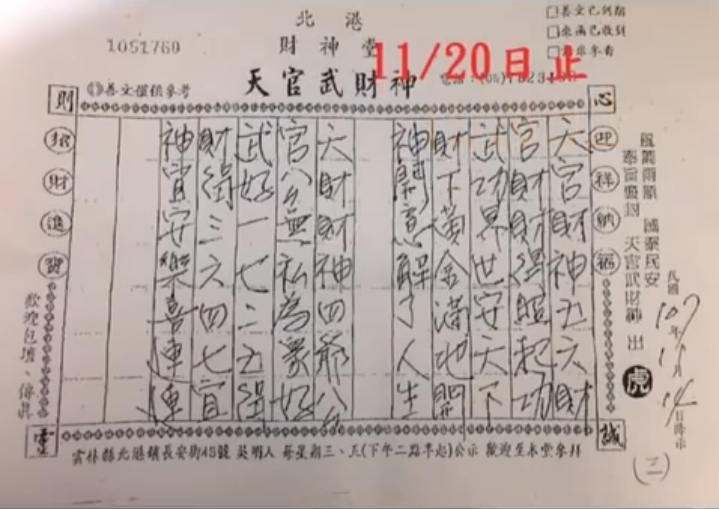 北港
財神堂
天官武財神
1051760
善文僅供參考
11/20日止
電話：(05)
善文已到期
來函已收到
風調雨順 國泰民安
天官武財神 出
虎
民國107年11月14日降示
(二)
心
誠
則
靈
迎祥納福
天官財神五六財
官財財得照起功
武功界世安天下
財下黃金滿地開
神開意解了人生
天財財神四爺公
官公無私為眾好
武好一七二五得
財得三六四七宜
神宜安樂喜連連
招財進寶
歡迎包壇、傳真
雲林縣北港鎮長安街48號 吳明人 每星期三、五(下午二點半起)公示 歡迎至本堂參拜